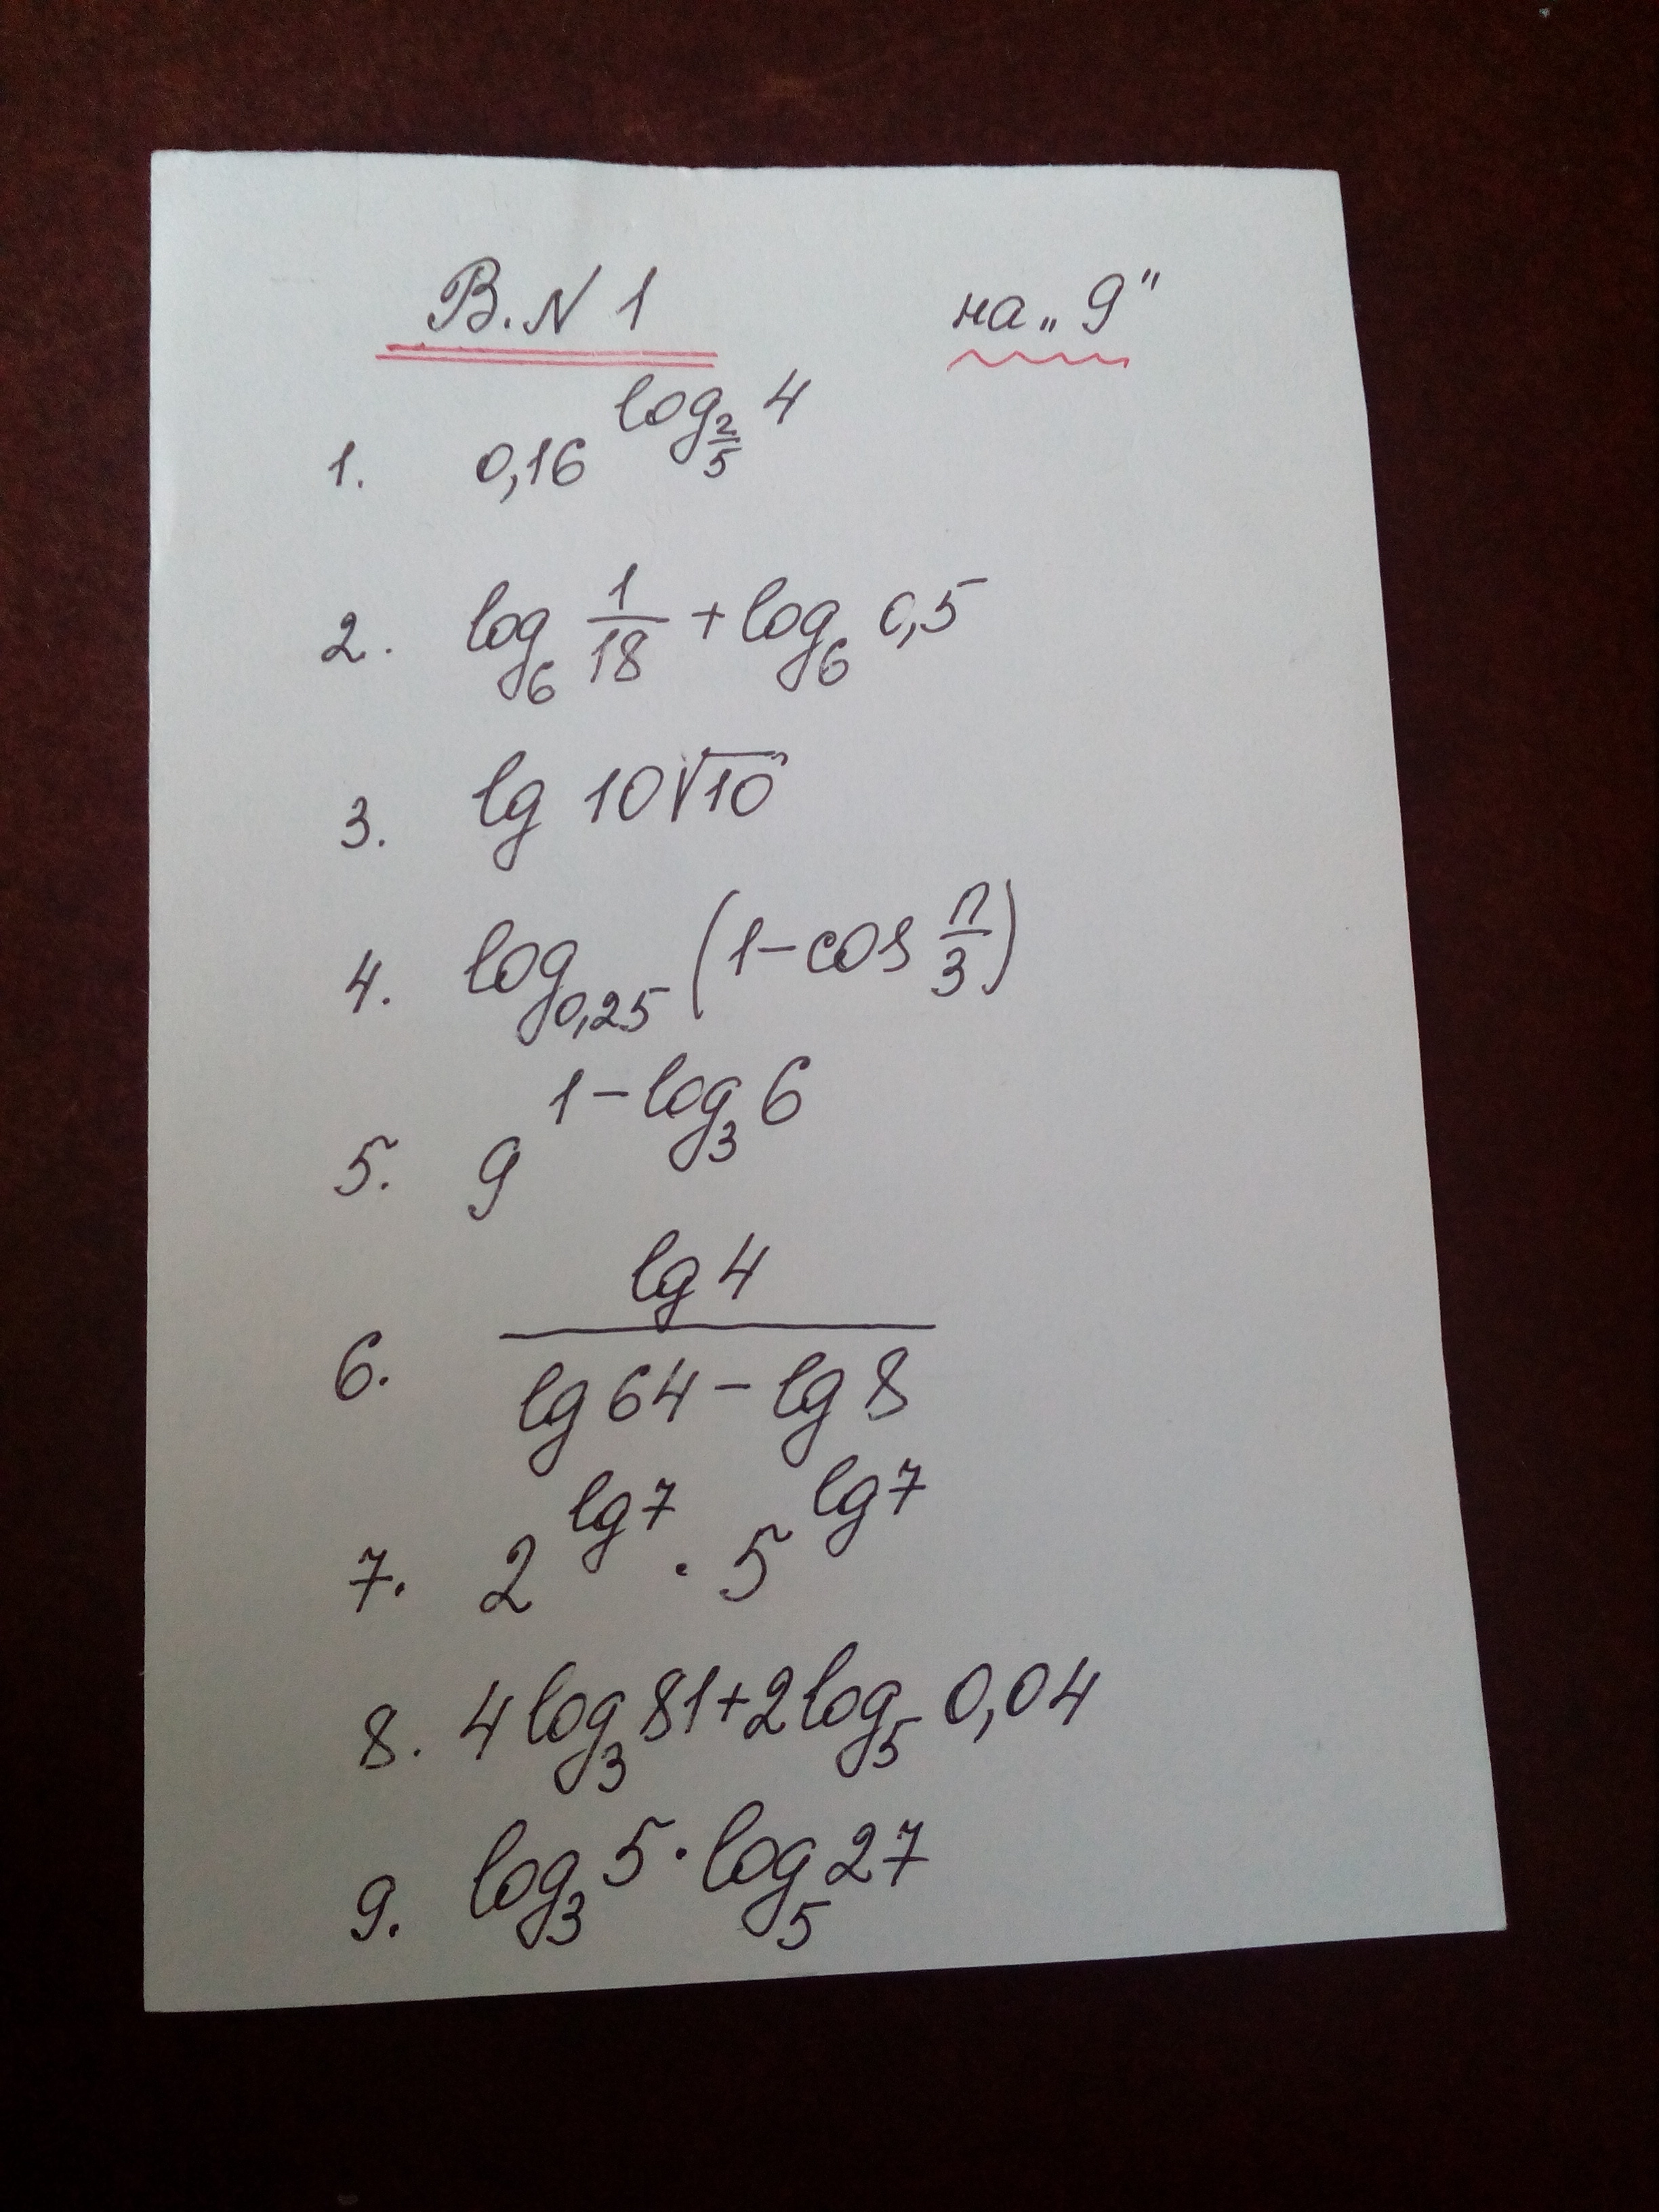 В. N 1 на „9"
1. 0,16^(log_(2/5) 4)
2. log_6 1/18 + log_6 0,5
3. lg 10√10
4. log_0,25 (1 - cos π/3)
5. 9^(1 - log_3 6)
6. lg 4 / (lg 64 - lg 8)
7. 2^(lg 7) · 5^(lg 7)
8. 4 log_3 81 + 2 log_5 0,04
9. log_3 5 · log_5 27